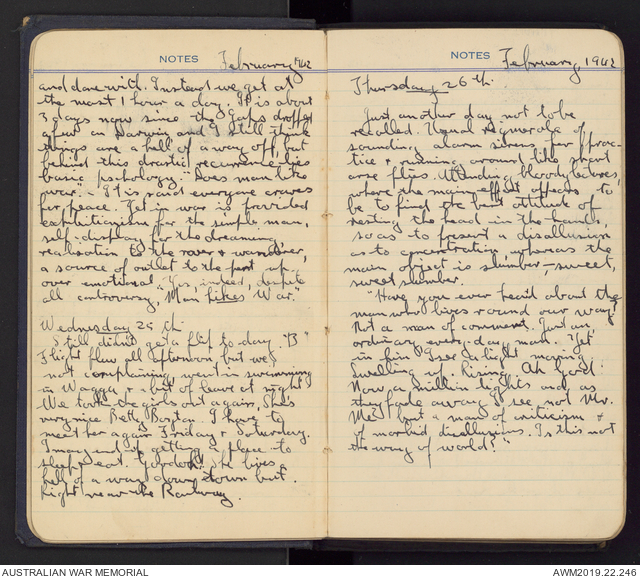 NOTES February 1942
and dare with. Instead we get at
the most 1 hour a day. It is about
3 days now since the Japs dropped
a few on Darwin and I still think
things are a hell of a way off, but
behind this drastic recurrence lies
basic "psychology". "Does man like
war". - It is said everyone craves
for peace. Yet in war is provided
for the simple man,
self-display for the dreaming,
realisation to the rover & wanderer,
a source of outlet to the pent up,
over emotional. "Yes, indeed, despite
all controversy, Man likes War."
Wednesday 25th
Still didn't get a flip to-day. "B"
Flight flew all afternoon but we
not complaining went in swimming
in Wagga, & a bit of leave at night.
We took the girls out again, She's
very nice Betty Boston. I have to
meet her again Friday & Saturday.
I managed of getting a place to
sleep & eat. he lives a
hell of a way down town but.
Right near the Railway.
NOTES February 1942
Thursday 26th.
Just another day not to be
recalled. Usual rigmarole of
sounding alarm sirens for prac-
tice & running around like
arse flies. Attending bloody lectures,
where the main effort appears to
be to find the best attitude of
resting the head in the hands,
so as to present a disillusion
as to concentration, whereas the
main object is slumber - sweet,
sweet slumber.
"Have you ever heard about the
man who lives round our way?
Not a man of comment. Just an
ordinary every-day man. Yet
in him I see a light moving.
Swelling up, rising, Ah God!
Now a million lights and as
they fade away I see not Mr.
Me, but a man of criticism &
of morbid disillusions. Is this not
the way of world?"
AUSTRALIAN WAR MEMORIAL
AWM2019.22.246